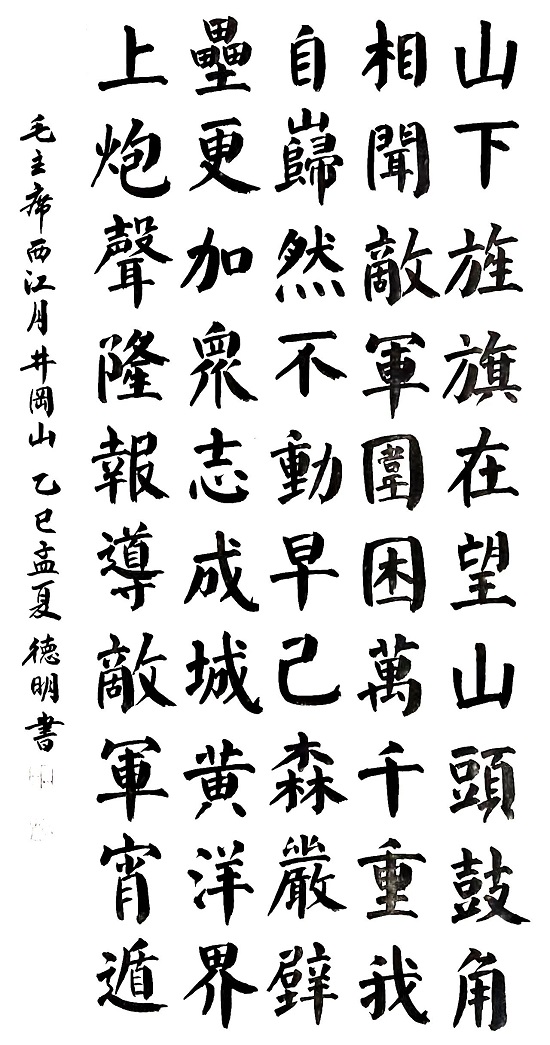 山下旌旗在望山頭鼓角
相聞敵軍圍困萬千重我
自巋然不動早已森嚴壁
壘更加眾志成城黄洋界
上炮聲隆報導敵軍宵遁
毛主席西江月井岡山乙巳孟夏德明書